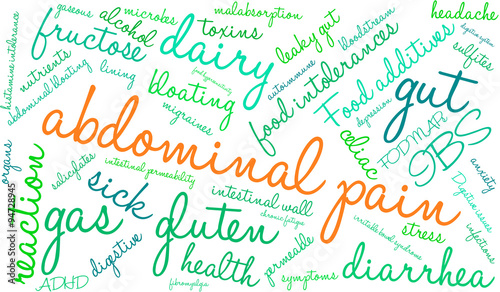 gaseous
microbes
malabsorption
headache
fructose
alcohol
toxins
leaky gut
bloodstream
digestive system
histamine intolerance
dairy
sulfites
nutrients
lining
food hypersensitivity
autoimmune
food intolerances
Food additives
abdominal bloating
bloating
migraines
depression
gut
abdominal pain
celiac
FODMAP
IBS
anxiety
organs
salicylates
intestinal permeability
sick
intestinal wall
chronic fatigue
Digestive issues
reaction
gas
gluten
stress
irritable bowel syndrome
infections
digestive
health
permeable
ADHD
fibromyalgia
symptoms
diarrhea
Adobe Stock | #94728945